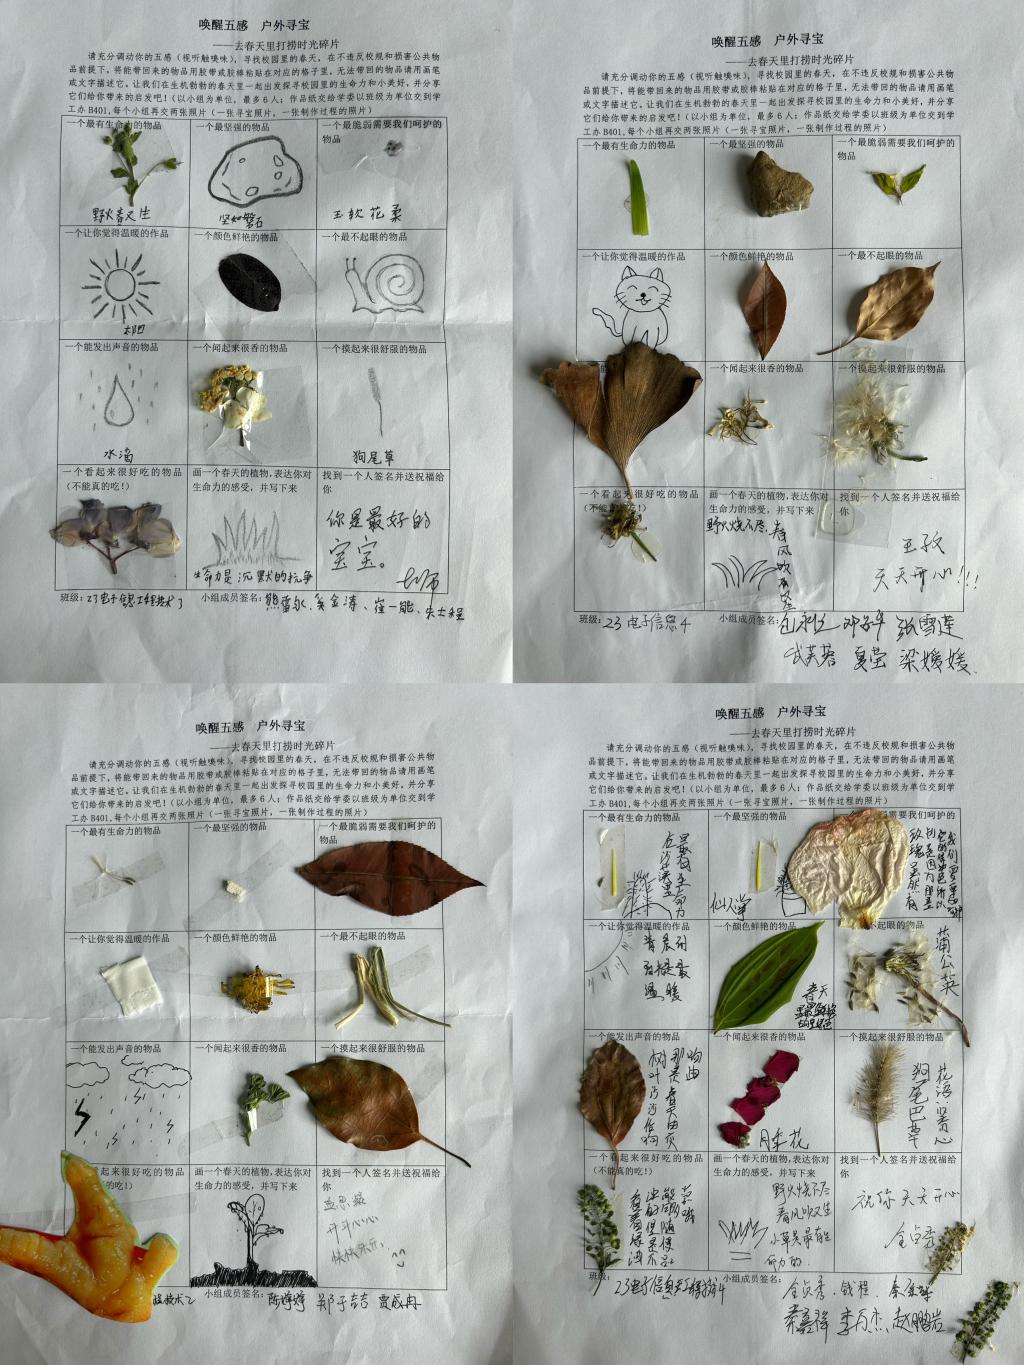 唤醒五感 户外寻宝
——去春天里打捞时光碎片
请充分调动你的五感（视听触嗅味），寻找校园里的春天，在不违反校规和损害公共物
品前提下，将能带回来的物品用胶带或胶棒粘贴在对应的格子里，无法带回的物品请用画笔
或文字描述它。让我们在生机勃勃的春天里一起出发探寻校园里的生命力和小美好，并分享
它们给你带来的启发吧！（以小组为单位，最多 6 人；作品纸交给学委以班级为单位交到学
工办 B401，每个小组再交两张照片（一张寻宝照片，一张制作过程的照片）
一个最有生命力的物品
野火春又生
一个最坚强的物品
坚如磐石
一个最脆弱需要我们呵护的
物品
玉软花柔
一个让你觉得温暖的作品
太阳
一个颜色鲜艳的物品
一个最不起眼的物品
一个能发出声音的物品
水滴
一个闻起来很香的物品
一个摸起来很舒服的物品
狗尾草
一个看起来很好吃的物品
（不能真的吃！）
画一个春天的植物，表达你对
生命力的感受，并写下来
生命力是沉默的抗争
找到一个人签名并送祝福给
你
你是最好的
宝宝。
班级：23电子信息工程技术
小组成员签名：
唤醒五感 户外寻宝
——去春天里打捞时光碎片
请充分调动你的五感（视听触嗅味），寻找校园里的春天，在不违反校规和损害公共物
品前提下，将能带回来的物品用胶带或胶棒粘贴在对应的格子里，无法带回的物品请用画笔
或文字描述它。让我们在生机勃勃的春天里一起出发探寻校园里的生命力和小美好，并分享
它们给你带来的启发吧！（以小组为单位，最多 6 人；作品纸交给学委以班级为单位交到学
工办 B401，每个小组再交两张照片（一张寻宝照片，一张制作过程的照片）
一个最有生命力的物品
一个最坚强的物品
一个最脆弱需要我们呵护的
物品
一个让你觉得温暖的作品
一个颜色鲜艳的物品
一个最不起眼的物品
一个闻起来很香的物品
一个摸起来很舒服的物品
一个看起来很好吃的物品
（不能真的吃！）
画一个春天的植物，表达你对
生命力的感受，并写下来
野火烧不尽，春风吹又生
找到一个人签名并送祝福给
你
天天开心!!!
班级：23电子信息4
小组成员签名：
张雪莲
武芙蓉 夏莹 梁媛媛
唤醒五感 户外寻宝
——去春天里打捞时光碎片
请充分调动你的五感（视听触嗅味），寻找校园里的春天，在不违反校规和损害公共物
品前提下，将能带回来的物品用胶带或胶棒粘贴在对应的格子里，无法带回的物品请用画笔
或文字描述它。让我们在生机勃勃的春天里一起出发探寻校园里的生命力和小美好，并分享
它们给你带来的启发吧！（以小组为单位，最多 6 人；作品纸交给学委以班级为单位交到学
工办 B401，每个小组再交两张照片（一张寻宝照片，一张制作过程的照片）
一个最有生命力的物品
一个最坚强的物品
一个最脆弱需要我们呵护的
物品
一个让你觉得温暖的作品
一个颜色鲜艳的物品
一个最不起眼的物品
一个能发出声音的物品
一个闻起来很香的物品
一个摸起来很舒服的物品
看起来很好吃的物品
的吃！）
画一个春天的植物，表达你对
生命力的感受，并写下来
找到一个人签名并送祝福给
你
开开心心
快快乐乐
小组成员签名：
唤醒五感 户外寻宝
——去春天里打捞时光碎片
请充分调动你的五感（视听触嗅味），寻找校园里的春天，在不违反校规和损害公共物
品前提下，将能带回来的物品用胶带或胶棒粘贴在对应的格子里，无法带回的物品请用画笔
或文字描述它。让我们在生机勃勃的春天里一起出发探寻校园里的生命力和小美好，并分享
它们给你带来的启发吧！（以小组为单位，最多 6 人；作品纸交给学委以班级为单位交到学
工办 B401，每个小组再交两张照片（一张寻宝照片，一张制作过程的照片）
一个最有生命力的物品
一个最坚强的物品
仙人掌
需要我们呵护的
一个让你觉得温暖的作品
温暖
一个颜色鲜艳的物品
春天
不起眼的物品
蒲公英
一个能发出声音的物品
一个闻起来很香的物品
月季花
一个摸起来很舒服的物品
狗尾巴草
一个看起来很好吃的物品
（不能真的吃！）
画一个春天的植物，表达你对
生命力的感受，并写下来
野火烧不尽
春风吹又生
小草是最能
找到一个人签名并送祝福给
你
祝你天天开心
班级：
小组成员签名：